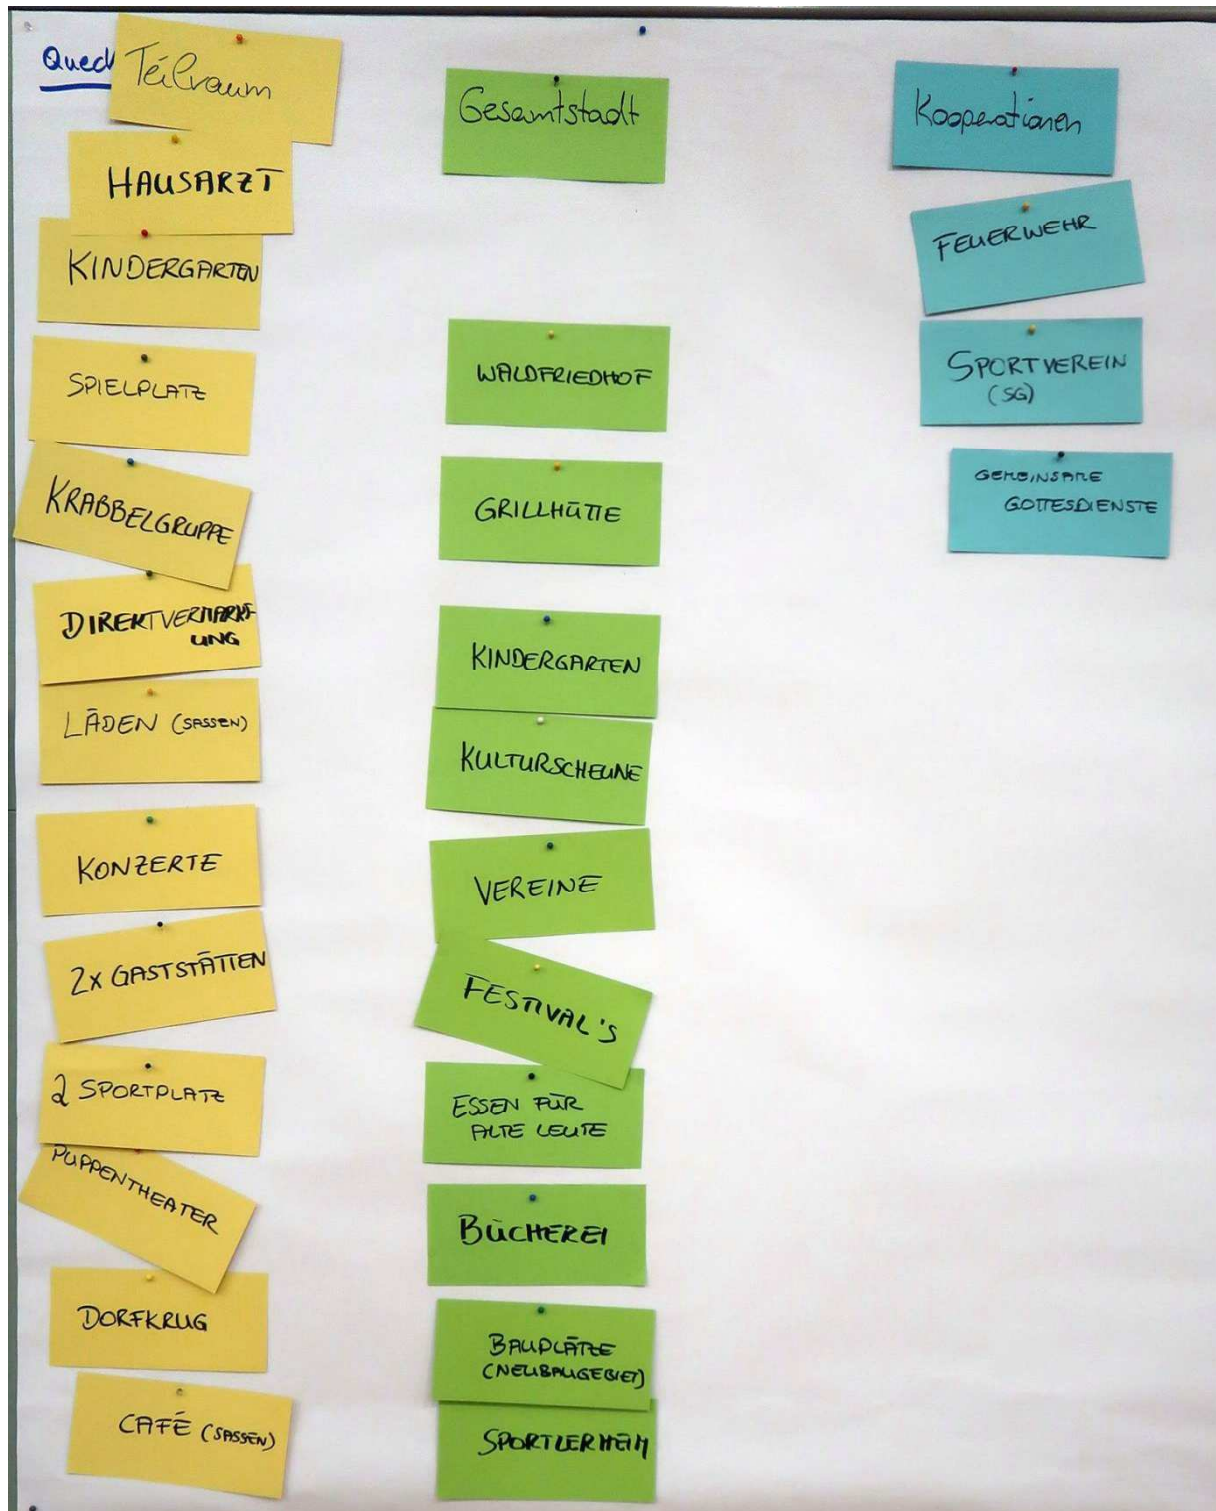 Queck
Teilraum
HAUSARZT
KINDERGARTEN
SPIELPLATZ
KRABBELGRUPPE
DIREKTVERMARKT-
UNG
LÄDEN (SASSEN)
KONZERTE
2x GASTSTÄTTEN
2 SPORTPLATZ
PUPPENTHEATER
DORFKRUG
CAFÉ (SASSEN)
Gesamtstadt
WALDFRIEDHOF
GRILLHÜTTE
KINDERGARTEN
KULTURSCHEUNE
VEREINE
FESTIVAL'S
ESSEN FÜR
ALTE LEUTE
BÜCHEREI
BAUPLÄTZE
(NEUBAUGEBIET)
SPORTLERHEIM
Kooperationen
FEUERWEHR
SPORTVEREIN
(SG)
GEMEINSAME
GOTTESDIENSTE